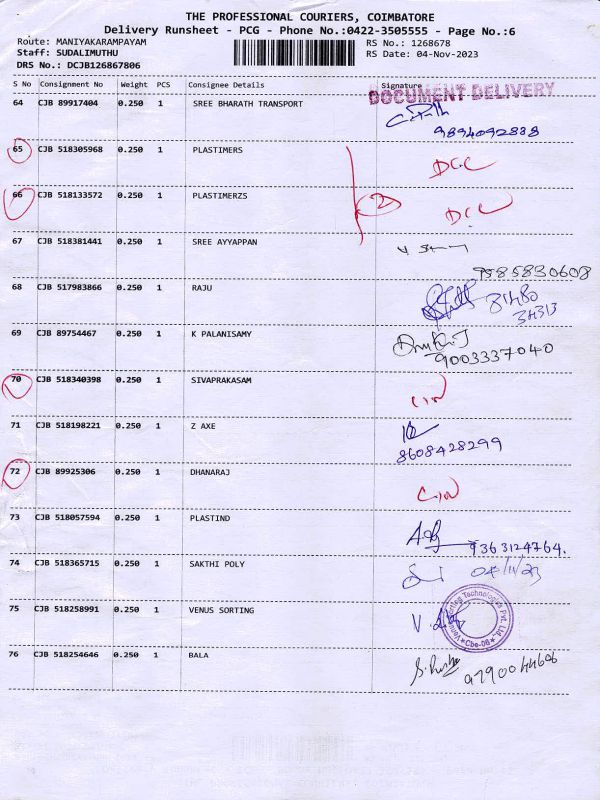 THE PROFESSIONAL COURIERS, COIMBATORE
Delivery Runsheet - PCG - Phone No.:0422-3505555 - Page No.:6
Route: MANIYAKARAMPAYAM RS No.: 1268678
Staff: SUDALIMUTHU RS Date: 04-Nov-2023
DRS No.: DCJB126867806
S No Consignment No Weight PCS Consignee Details Signature
DOCUMENT DELIVERY
64 CJB 89917404 0.250 1 SREE BHARATH TRANSPORT
9894092888
65 CJB 518305968 0.250 1 PLASTIMERS
DCC
66 CJB 518133572 0.250 1 PLASTIMERZS
2
DCC
67 CJB 518381441 0.250 1 SREE AYYAPPAN
68 CJB 517983866 0.250 1 RAJU
69 CJB 89754467 0.250 1 K PALANISAMY
9003337040
70 CJB 518340398 0.250 1 SIVAPRAKASAM
71 CJB 518198221 0.250 1 Z AXE
8608428299
72 CJB 89925306 0.250 1 DHANARAJ
73 CJB 518057594 0.250 1 PLASTIND
9363124764.
74 CJB 518365715 0.250 1 SAKTHI POLY
04/11/23
75 CJB 518258991 0.250 1 VENUS SORTING
Venus Sorting Technologies Pvt. Ltd. Cbe-06
76 CJB 518254646 0.250 1 BALA
9790044606